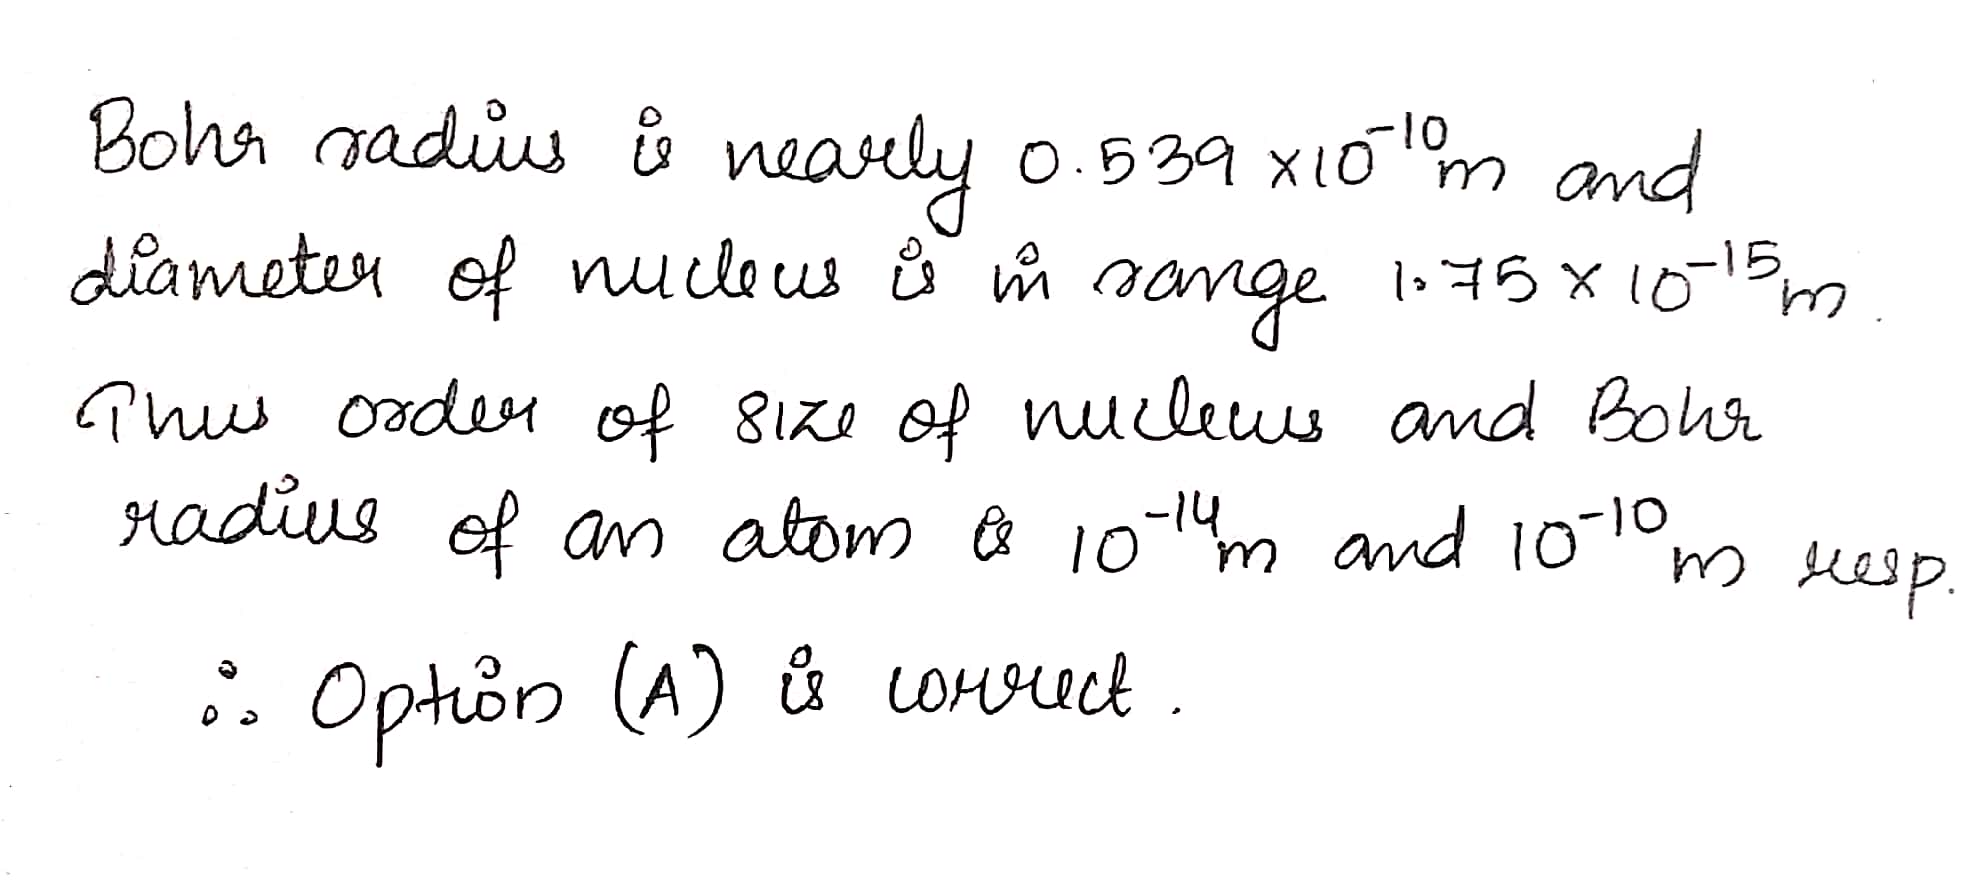 Bohr radius is nearly 0.539 x10⁻¹⁰m and
diameter of nucleus is in range 1.75 x 10⁻¹⁵m.
Thus order of size of nucleus and Bohr
radius of an atom is 10⁻¹⁴m and 10⁻¹⁰m resp.
∴ Option (A) is correct.